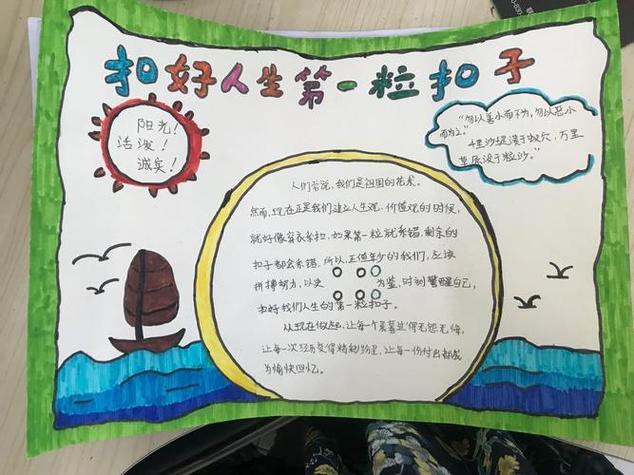 扣好人生第一粒扣子
阳光！
活泼！
诚实！
"勿以善小而不为，勿以恶小
而为之。"
千里沙堤溃于蚁穴，万里
草原没于粒沙。"
人们常说，我们是祖国的花朵。
然而，现在正是我们建立人生观、价值观的时候，
就好像穿衣系扣，如果第一粒就系错，剩余的
扣子都会系错。所以，正值年少的我们，应该
拼搏努力，以史为鉴，时刻警醒自己，
扣好我们人生的第一粒扣子。
从现在做起，让每个晨暮过得无怨无悔，
让每一次经历变得精彩纷呈，让每一份付出都成
为愉快回忆。